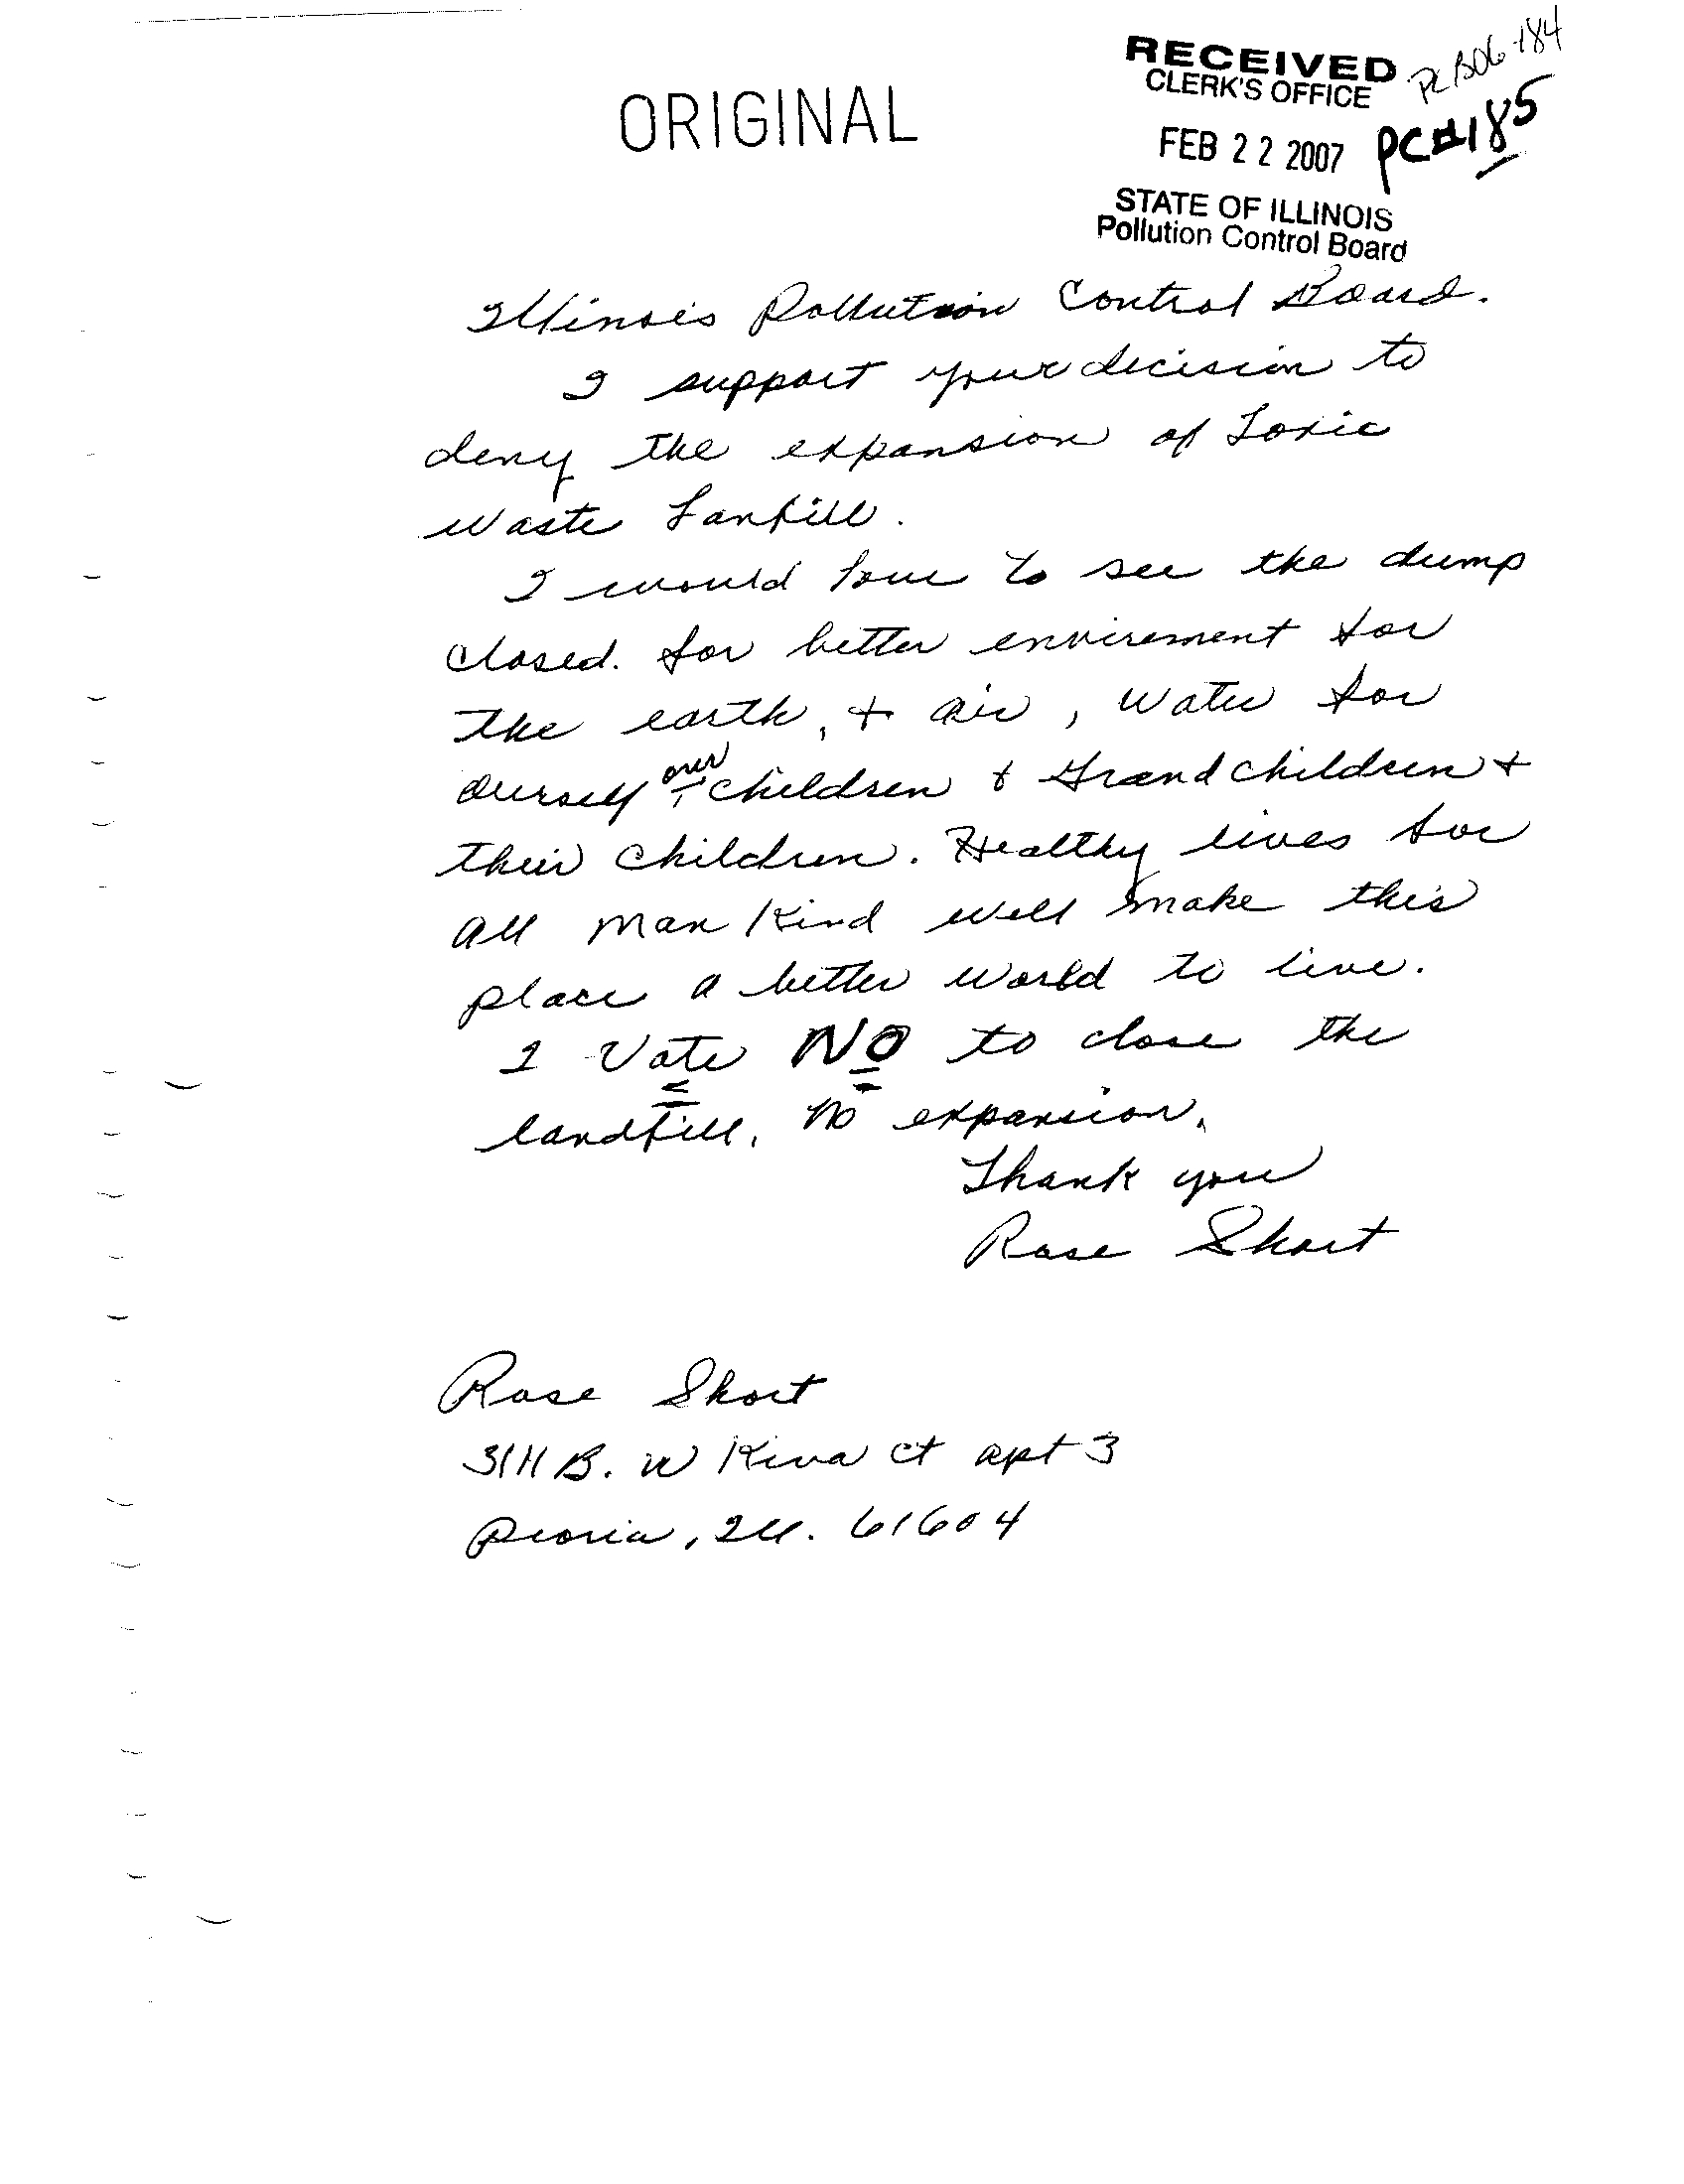 ORIGINAL
RECEIVED
CLERK'S OFFICE
PCB06-184
FEB 22 2007
PC#185
STATE OF ILLINOIS
Pollution Control Board
Illinois Pollution Control Board.
I support your decision to
deny the expansion of Toxic
Waste Lanfill.
I would love to see the dump
closed. for better envirement for
the earth, + air, water for
ourself our children + Grandchildren +
their children. Healthy lives for
all man kind will make this
place a better world to live.
I Vote NO to close the
landfill, no expansion.
Thank you
Rose Short
Rose Short
3111 B. W Kiva ct apt 3
Peoria, Ill. 61604